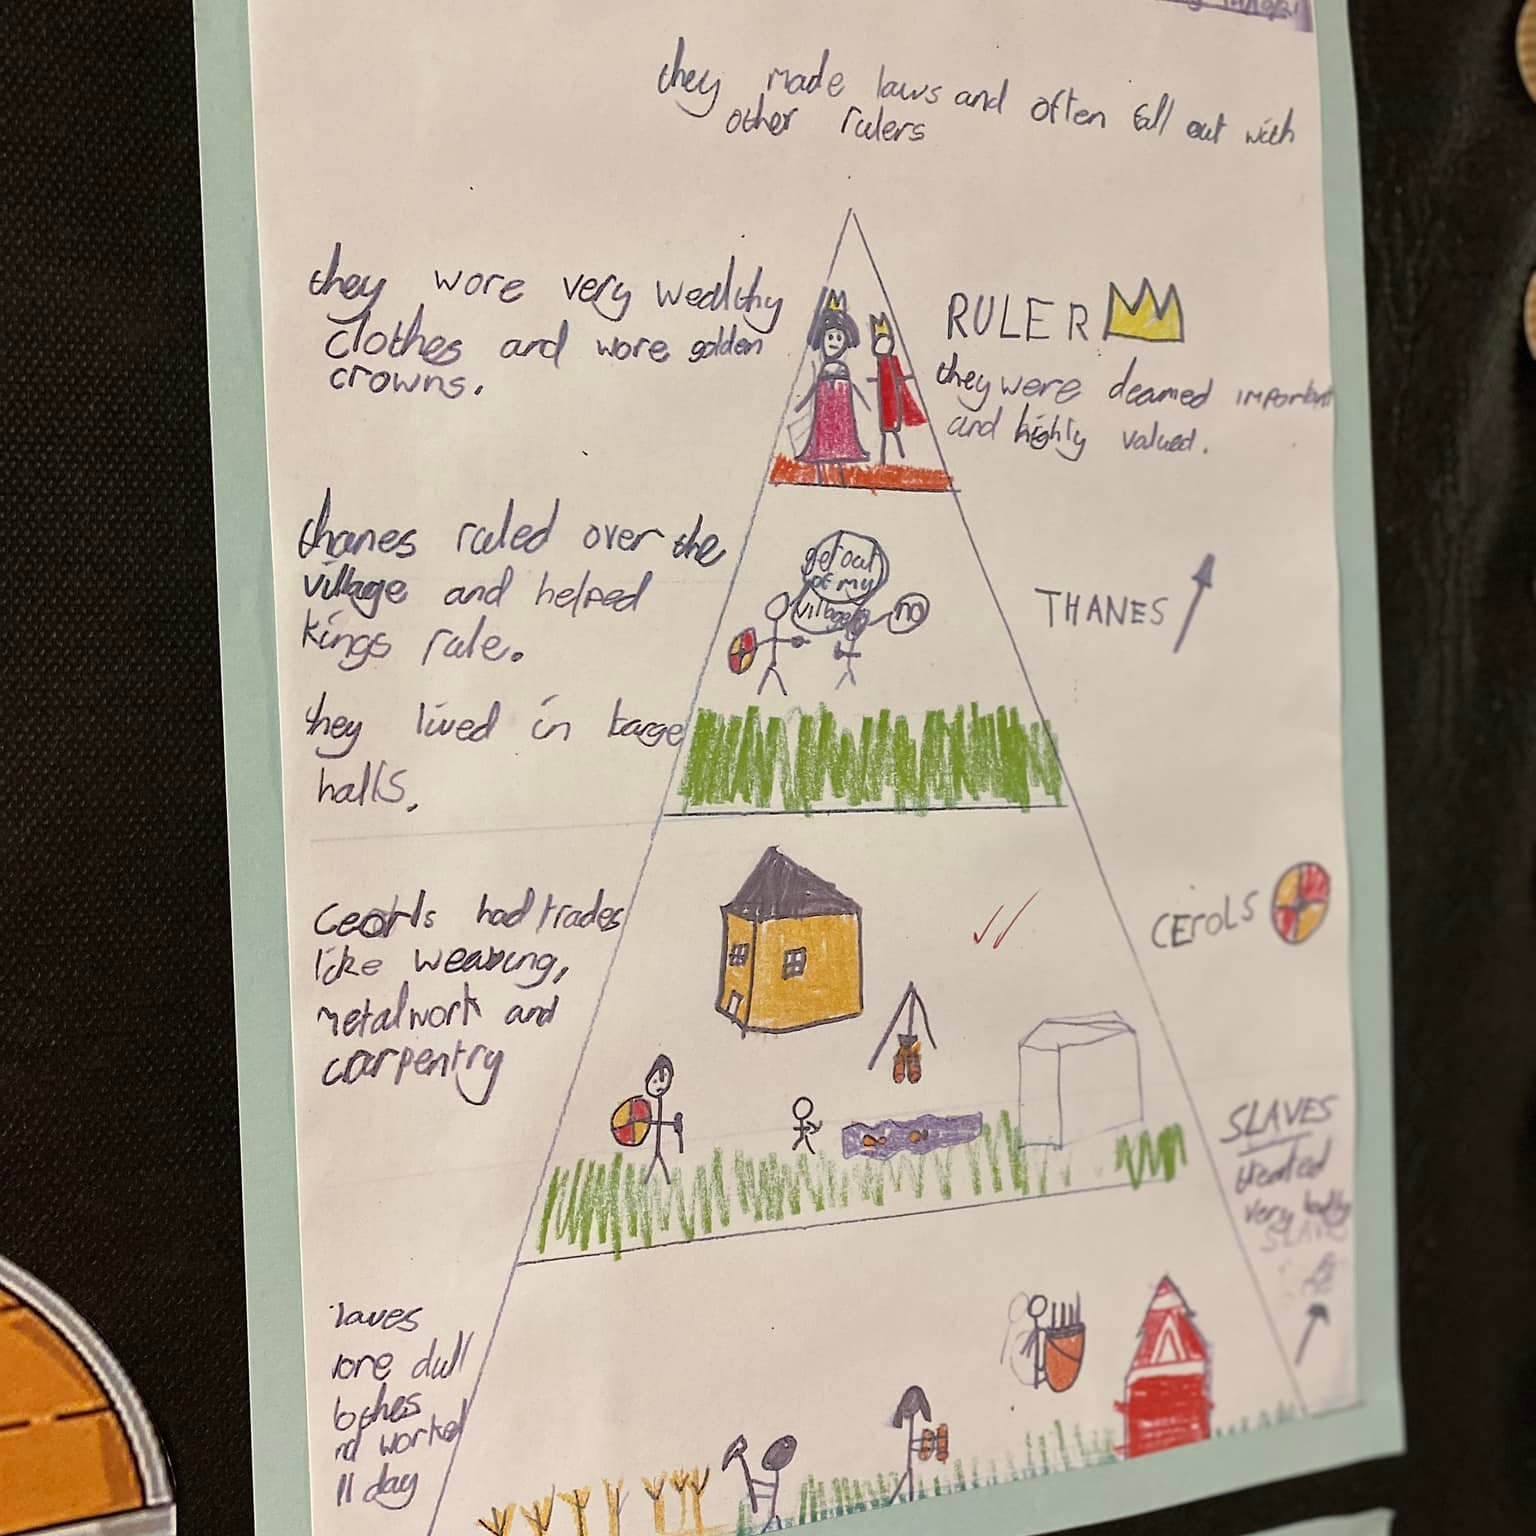 they made laws and often fall out with
other rulers
they wore very wealthy
clothes and wore golden
crowns.
RULER
they were deamed important
and highly valued.
thanes ruled over the
village and helped
kings rule.
they lived in large
halls.
get out
of my
village
no
THANES
ceorls had trades
like weaving,
metalwork and
carpentry
CEROLS
SLAVES
treated
very badly
laves
ore dull
lothes
nd worked
ll day